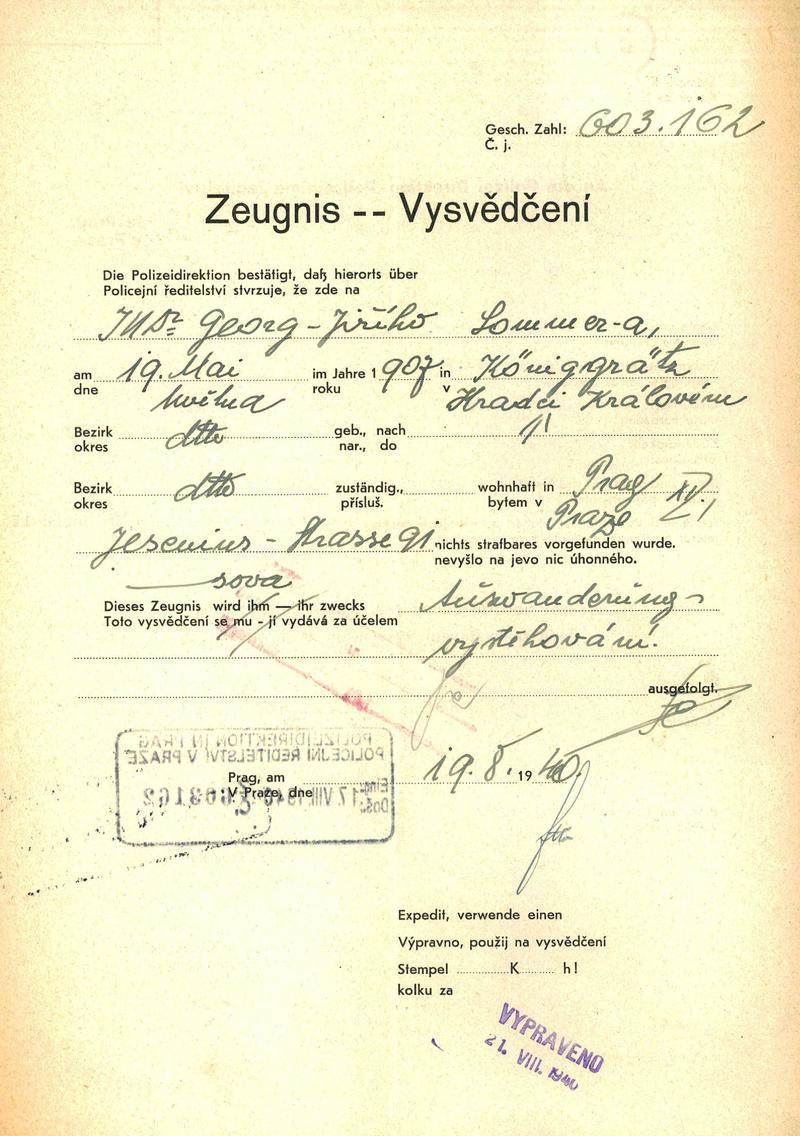 Gesch. Zahl: 603.162
Č. j.
Zeugnis -- Vysvědčení
Die Polizeidirektion bestätigt, daß hierorts über
Policejní ředitelství stvrzuje, že zde na
MDr. Georg - Jiřího Sommer-a,
am 19. Mai im Jahre 1907 in Königgrätz
dne května roku v Hradci Královém
Bezirk dtto geb., nach "
okres nar., do
Bezirk dtto zuständig., wohnhaft in Prag XI/1
okres přísluš. bytem v Praze
Jesenius - Strasse 91 nichts strafbares vorgefunden wurde.
sova nevyšlo na jevo nic úhonného.
Dieses Zeugnis wird ihm — ihr zwecks Auswanderung -
Toto vysvědčení se mu - jí vydává za účelem vystěhování.
ausgefolgt.
POLIZEIDIREKTION IN PRAG
POLICEJNÍ ŘEDITELSTVÍ V PRAZE
Eing.
Doš. 17. VIII. 1940 603162
Prag, am 19. 8. 1940.
V Praze, dne
Expedit, verwende einen
Výpravno, použij na vysvědčení
Stempel K h!
kolku za
VYPRAVENO
21. VIII. 1940